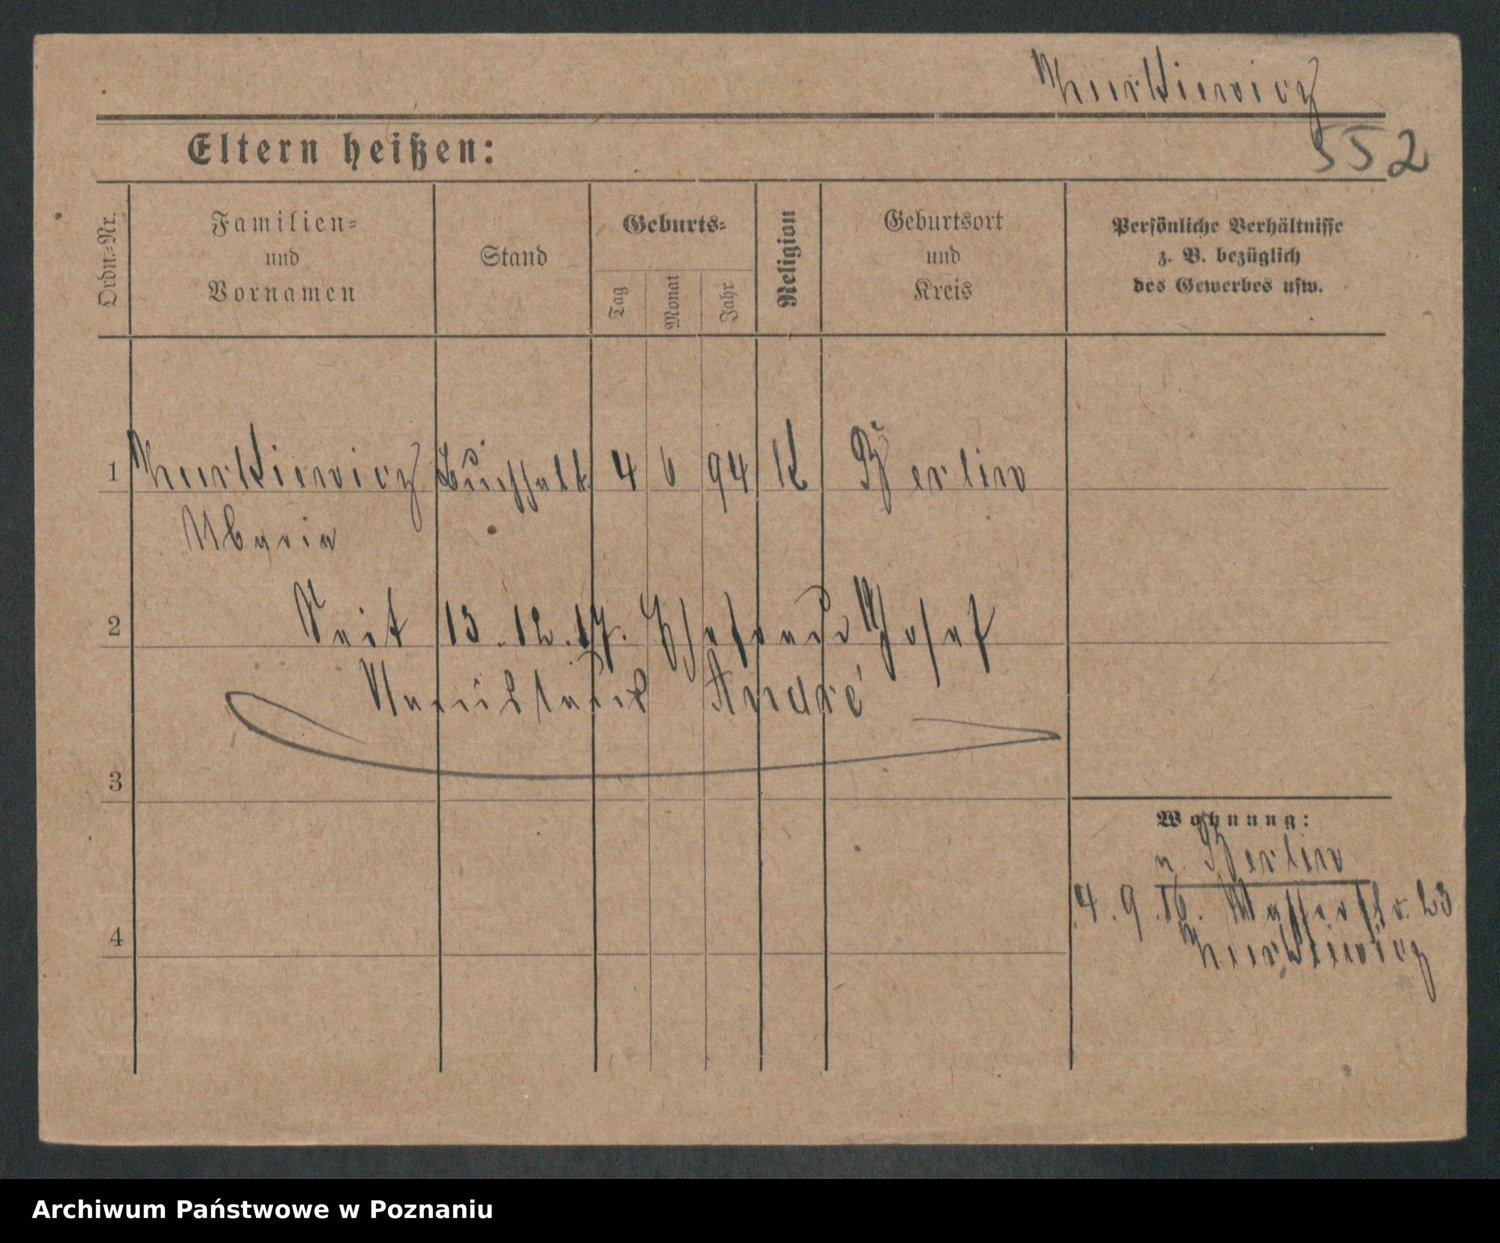 Kurkiewicz
552
Eltern heißen:
Ordn.-Nr.
Familien-
und
Vornamen
Stand
Geburts-
Tag
Monat
Jahr
Religion
Geburtsort
und
Kreis
Persönliche Verhältnisse
z. B. bezüglich
des Gewerbes usw.
1 Kurkiewicz Buchhalt 4 6 94 K Berlin
Maria
2 Seit 13.12.17. Ehefrau Josef
André
3
Wohnung:
n. Berlin
4.9.16. 23
Kurkiewicz
4
Archiwum Państwowe w Poznaniu